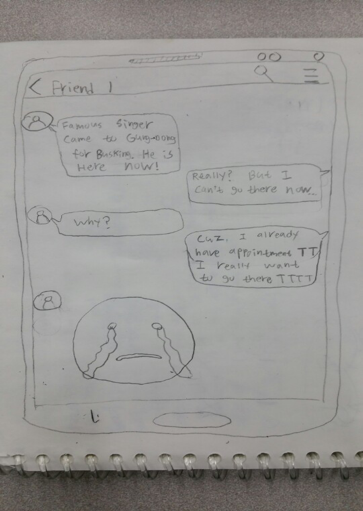 Friend 1
Famous Singer
came to Gung-dong
for Busking. He is
Here now!
Really? But I
can't go there now
Why?
Cuz, I already
have appointment TT
I really want
to go there TTTT